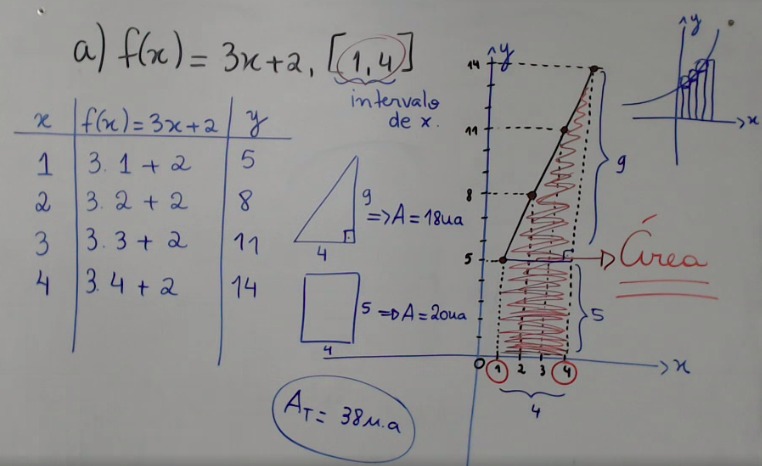 a) f(x) = 3x+2, [1,4]
intervalo
de x.
x f(x)=3x+2 y
1 3.1+2 5
2 3.2+2 8
3 3.3+2 11
4 3.4+2 14
9 => A=18ua
4
5 => A=20ua
4
A_T = 38u.a
y
14
11
8
5
0 1 2 3 4 x
4
9
5
Área
y
x